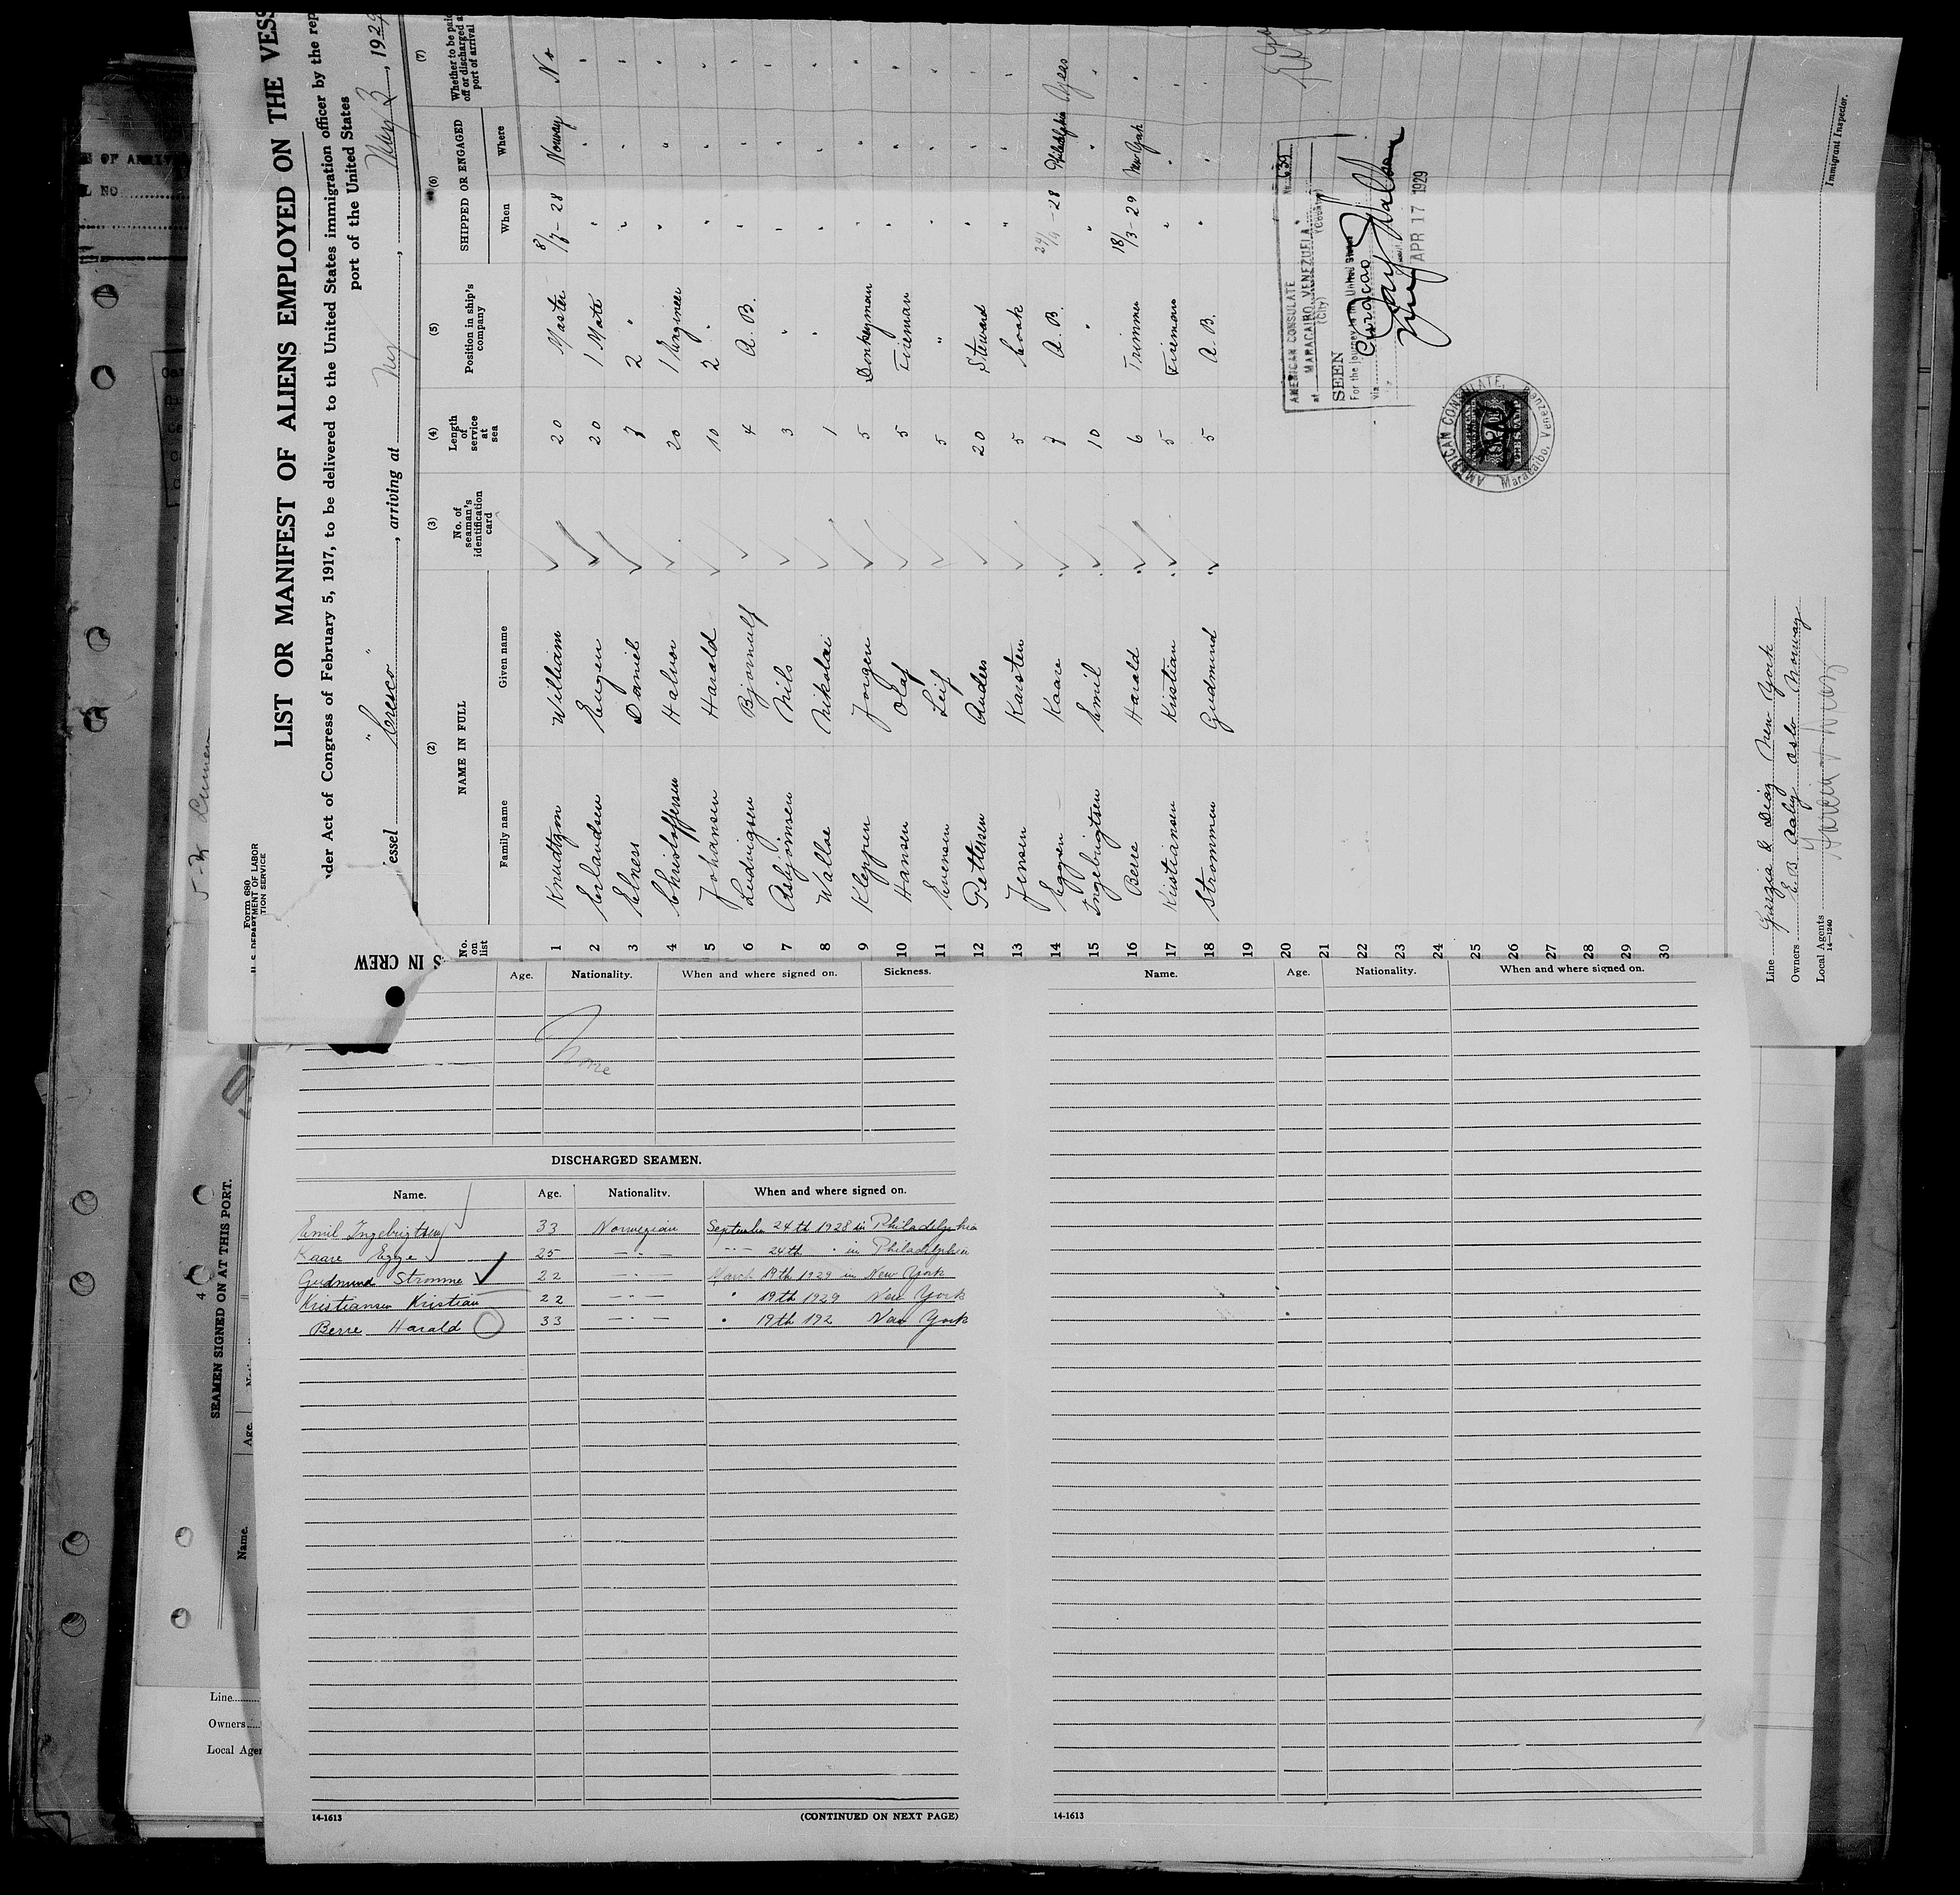 Form 680
U. S. DEPARTMENT OF LABOR
TION SERVICE
LIST OR MANIFEST OF ALIENS EMPLOYED ON THE VESS
der Act of Congress of February 5, 1917, to be delivered to the United States immigration officer by the rep
port of the United States
essel , arriving at Ny , May 3, 1929
(2) (3) (4) (5) (6) (7)
No. on list NAME IN FULL No. of seaman's identification card Length of service at sea Position in ship's company SHIPPED OR ENGAGED Whether to be paid off or discharged at port of arrival
Family name Given name When Where
1 Knudtzon William 20 Master 8/7-28 Norway No
2 Erlandsen Eugen 20 1 Mate " " "
3 Elness Daniel 7 2 " " " "
4 Christoffersen Halvor 20 1 Engineer " " "
5 Johansen Harald 10 2 " " " "
6 Ludvigsen Bjornulf 4 A. B. " " "
7 Asbjørnsen Nils 3 " " " "
8 Walløe Nikolai 1 " " " "
9 Kleppen Jorgen 5 Donkeyman " " "
10 Hansen Olaf 5 Fireman " " "
11 Evensen Leif 5 " " " "
12 Pettersen Anders 20 Steward " " "
13 Jensen Karsten 5 Cook " " "
14 Eggen Kaare 7 A. B. 24/9-28 Philadelphia yees
15 Ingebrigtsen Emil 10 " " " "
16 Berre Harald 6 Trimmer 18/3-29 New York "
17 Kristiansen Kristian 5 Fireman " " "
18 Strømmen Gudmund 5 A. B. " " "
19
20
21
22
23
24
25
26
27
28
29
30
AMERICAN CONSULATE No. 639
at MARACAIBO, VENEZUELA
(City) (Country)
SEEN
For the journey to the United States
via Curacao
APR 17 1929
AMERICAN CONSULATE,
Maracaibo, Venezuela
Line Garzia & Diaz New York
Owners E. B. Aaby Oslo Norway
Local Agents Garcia & Diaz
14-1240
Immigrant Inspector.
S IN CREW
Age. Nationality. When and where signed on. Sickness.
None
DISCHARGED SEAMEN.
Name. Age. Nationality. When and where signed on.
Emil Ingebrigtsen 33 Norwegian September 24th 1928 in Philadelphia
Kaare Egge 25 — " — " 24th " in Philadelphia
Gudmund Stromme 22 — " — March 19th 1929 in New York
Kristiansen Kristian 22 — " — " 19th 1929 New York
Berre Harald 33 — " — " 19th 192 New York
14-1613
(CONTINUED ON NEXT PAGE)
Name. Age. Nationality. When and where signed on.
14-1613
SEAMEN SIGNED ON AT THIS PORT.
Name. Age.
Line
Owners
Local Agen